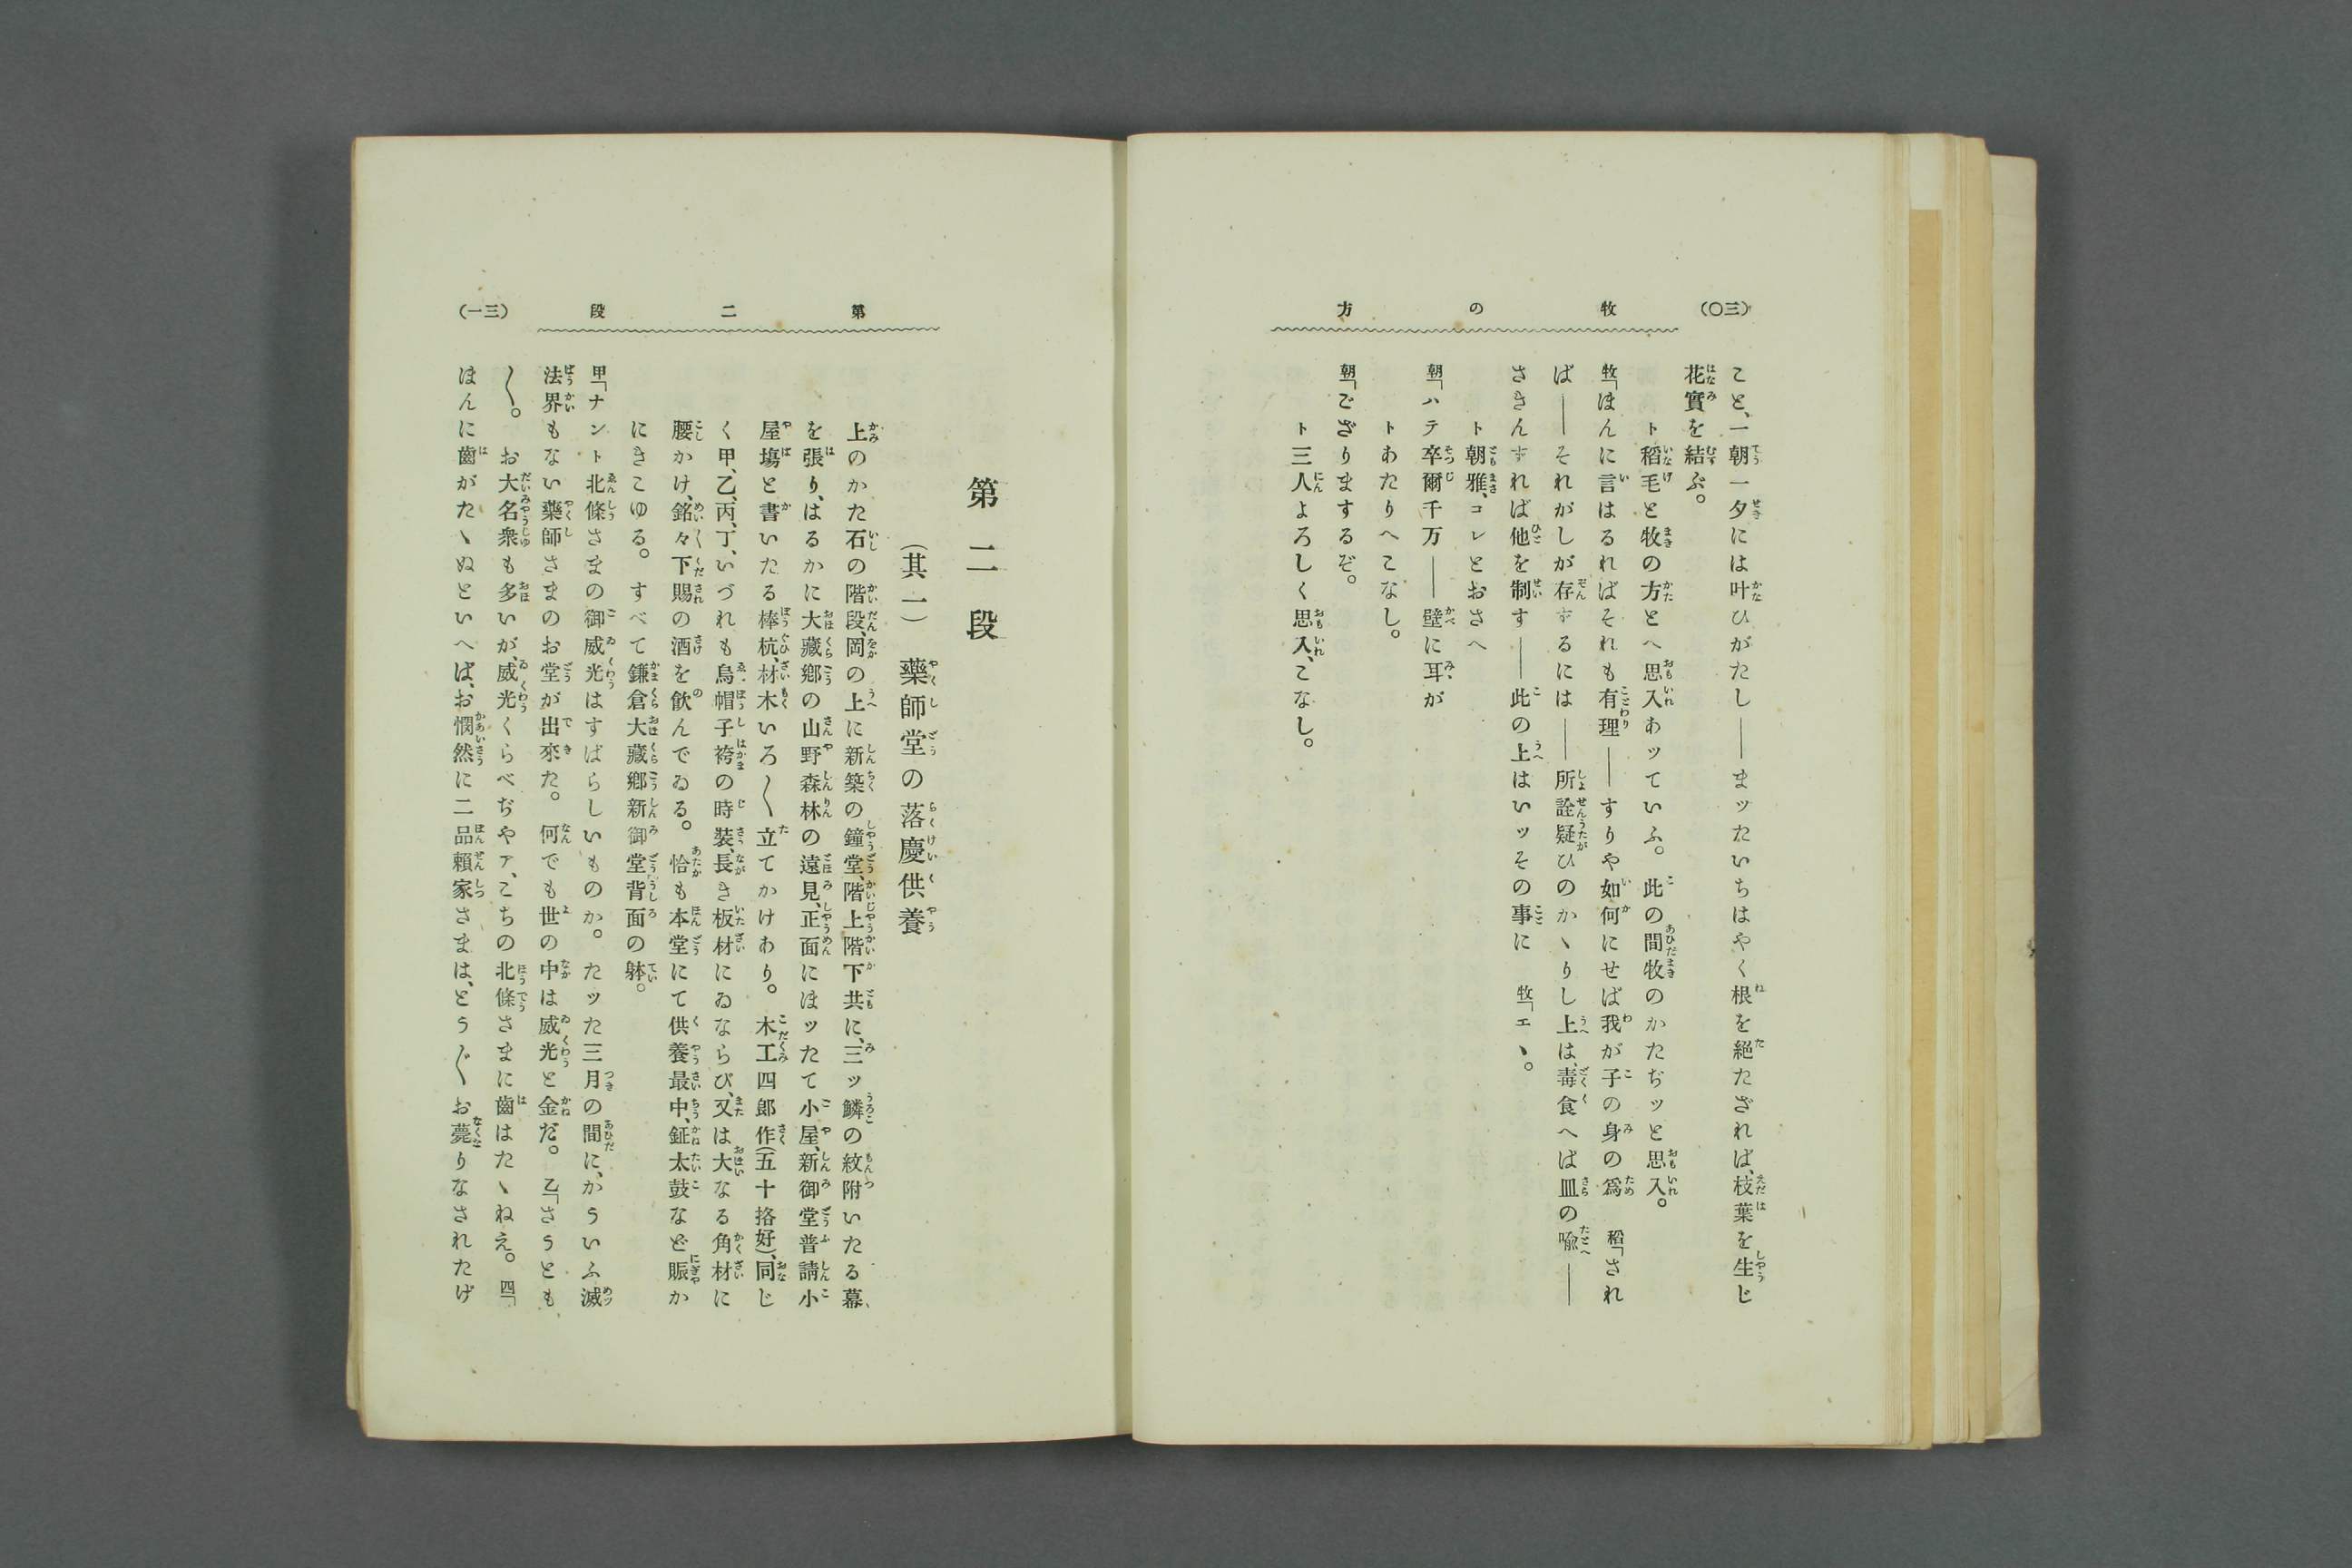 (三〇)
牧の方
こと、一朝一夕には叶ひがたし――まッたいちはやく根を絶たざれば、枝葉を生じ
花實を結ぶ。
ト稻毛と牧の方とへ思入あッていふ。此の間牧のかたぢッと思入。
牧「ほんに言はるればそれも有理――すりや如何にせば我が子の身の爲 稻「され
ば――それがしが存ずるには――所詮疑ひのかゝりし上は、毒食へば皿の喩――
さきんずれば他を制す――此の上はいッその事に 牧「エヽ。
ト朝雅、コレとおさへ
朝「ハテ卒爾千万――壁に耳が
トあたりへこなし。
朝「ござりまするぞ。
ト三人よろしく思入、こなし。
第二段
(三一)
第二段
(其一) 藥師堂の落慶供養
上のかた石の階段、岡の上に新築の鐘堂、階上階下共に、三ッ鱗の紋附いたる幕
を張り、はるかに大藏鄕の山野森林の遠見、正面にほッたて小屋、新御堂普請小
屋塲と書いたる棒杭、材木いろ〳〵立てかけあり。木工四郎作(五十挌好)、同じ
く甲、乙、丙、丁、いづれも烏帽子袴の時裝、長き板材にゐならび、又は大なる角材に
腰かけ、銘々下賜の酒を飮んでゐる。恰も本堂にて供養最中、鉦太鼓など賑か
にきこゆる。すべて鎌倉大藏鄕新御堂背面の躰。
甲「ナント北條さまの御威光はすばらしいものか。たッた三月の間に、かういふ滅
法界もない藥師さまのお堂が出來た。何でも世の中は威光と金だ。 乙「さうとも
〳〵。お大名衆も多いが、威光くらべぢやァ、こちの北條さまに齒はたゝねえ。 四「
ほんに齒がたゝぬといへば、お憫然に二品賴家さまは、とう〴〵お薨りなされたげ